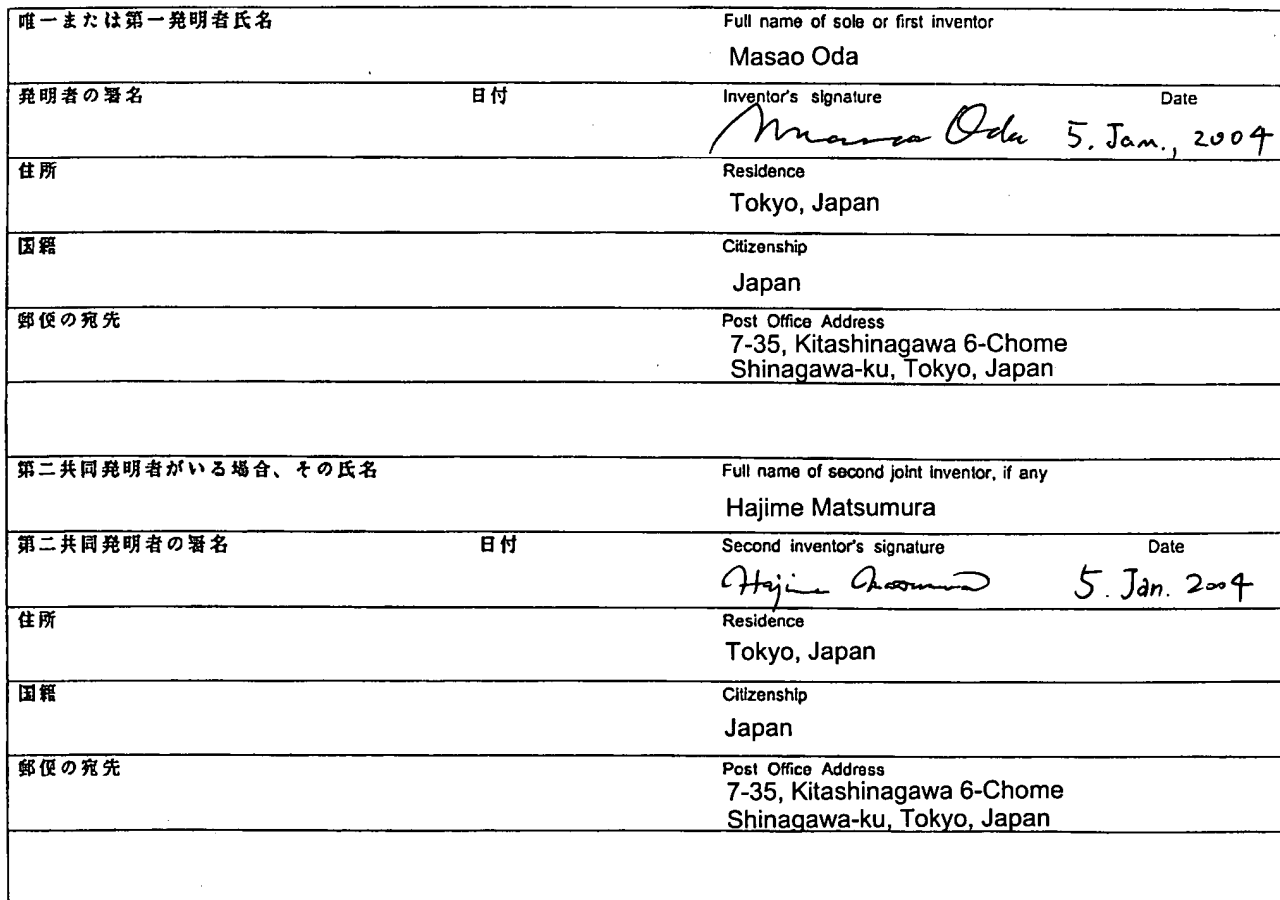 唯一または第一発明者氏名
Full name of sole or first inventor
Masao Oda
発明者の署名 日付
Inventor's signature Date
Masao Oda 5. Jan., 2004
住所
Residence
Tokyo, Japan
国籍
Citizenship
Japan
郵便の宛先
Post Office Address
7-35, Kitashinagawa 6-Chome
Shinagawa-ku, Tokyo, Japan
第二共同発明者がいる場合、その氏名
Full name of second joint inventor, if any
Hajime Matsumura
第二共同発明者の署名 日付
Second inventor's signature Date
Hajime Matsumura 5. Jan. 2004
住所
Residence
Tokyo, Japan
国籍
Citizenship
Japan
郵便の宛先
Post Office Address
7-35, Kitashinagawa 6-Chome
Shinagawa-ku, Tokyo, Japan